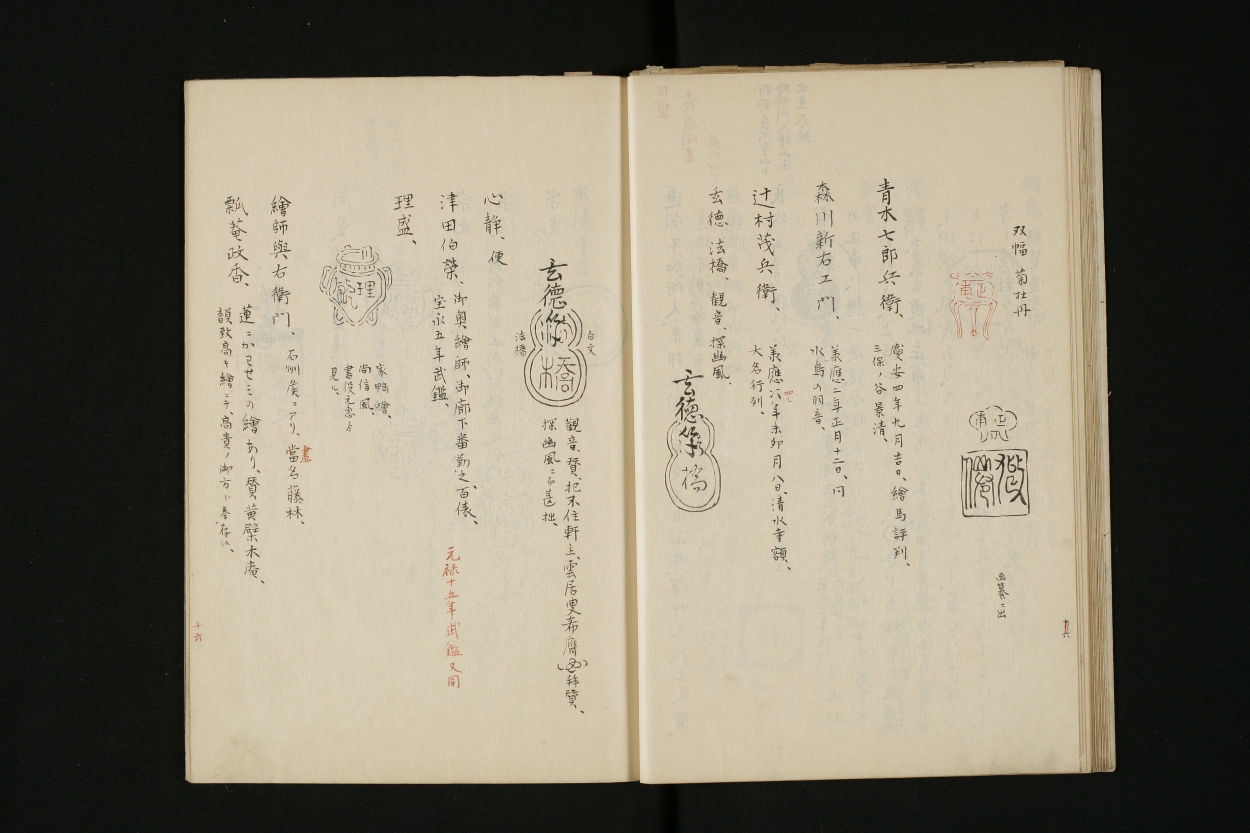 双幅 菊牡丹
画纂ニ出
青木七郎兵衛、
慶安四年九月吉日、繪馬評判、
三保ノ谷景清、
森川新右エ門、
義應二年正月十二日、同
水鳥の羽音、
辻村茂兵衛、
義應六年未卯月八日、清水寺額、
四
大名行列、
玄徳 法橋、観音、探幽風、
玄徳筆
橋
十六
観音、賛、把不住軒主、雲居叟希膺 拝賛、
探幽風ニテ甚拙、
玄徳筆
法橋
白文
法橋
心静、便
津田伯榮、
御奥繪師、御廊下番勤之、百俵、
宝永五年武鑑、
元禄十五年武鑑又同
理盛、
理
家鴨繪、
尚信風、
書役元恵ゟ
見ル、
繪師與右衛門、
石州候ニアリ、當名藤林、
畫
瓢菴政香、
蓮ニかわせミの繪あり、賛黄檗木庵、
韻致高キ繪ニテ、高貴ノ御方ト奉存候、
十六